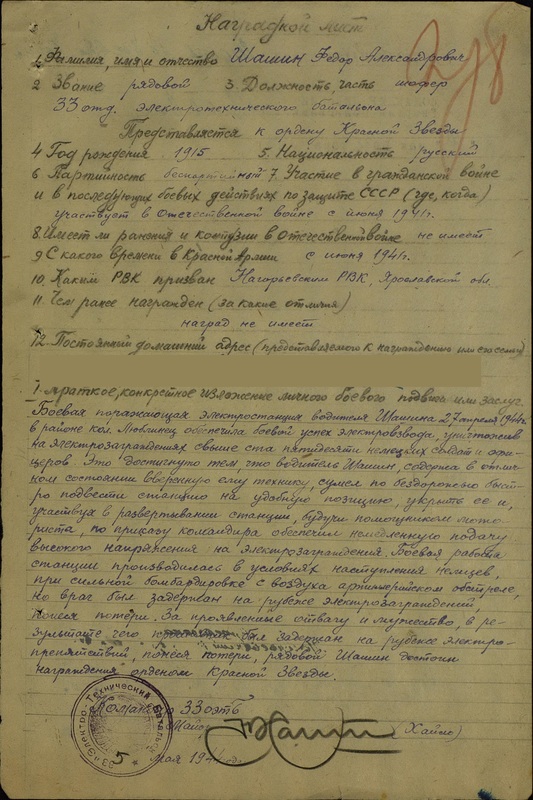 Наградной лист
1. Фамилия, имя и отчество Шашин Федор Александрович
2 Звание рядовой 3. Должность, часть шофер
33 отд. электротехнического батальона
Представляется к ордену Красной Звезды
4 Год рождения 1915 5. Национальность русский
6 Партийность беспартийный 7. Участие в гражданской войне
и в последующих боевых действиях по защите СССР (где, когда)
участвует в Отечественной войне с июня 1941г.
8. Имеет ли ранения и контузии в Отечественной войне не имеет
9 С какого времени в Красной Армии с июня 1941г.
10. Каким РВК призван Нагорьевским РВК, Ярославской обл.
11. Чем ранее награжден (за какие отличия)
наград не имеет
12. Постоянный домашний адрес (представляемого к награждению или его семьи)
1. Краткое, конкретное изложение личного боевого подвига или заслуг
Боевая поражающая электростанция водителя Шашина 27 апреля 1944г.
в районе кол. Люблинец обеспечила боевой успех электровзвода, уничтожив
на электрозаграждениях свыше ста пятидесяти немецких солдат и офи-
церов. Это достигнуто тем что водитель Шашин, содержа в отлич-
ном состоянии вверенную ему технику, сумел по бездорожью быст-
ро подвести станцию на удобную позицию, укрыть ее и,
участвуя в развертывании станции, будучи помощником мото-
риста, по приказу командира обеспечил немедленную подачу
высокого напряжения на электрозаграждения. Боевая работа
станции производилась в условиях наступления немцев,
при сильной бомбардировке с воздуха артиллерийском обстреле,
но враг был задержан на рубеже электрозаграждений,
понеся потери. За проявленные отвагу и мужество, в ре-
зультате чего был задержан на рубеже электро
препятствий, понеся потери, рядовой Шашин достоин
награждения орденом Красной Звезды.
Командир 33 оэтб
Майор (Хайно)
5 мая 1944 год
33 Электро-Технический Батальон